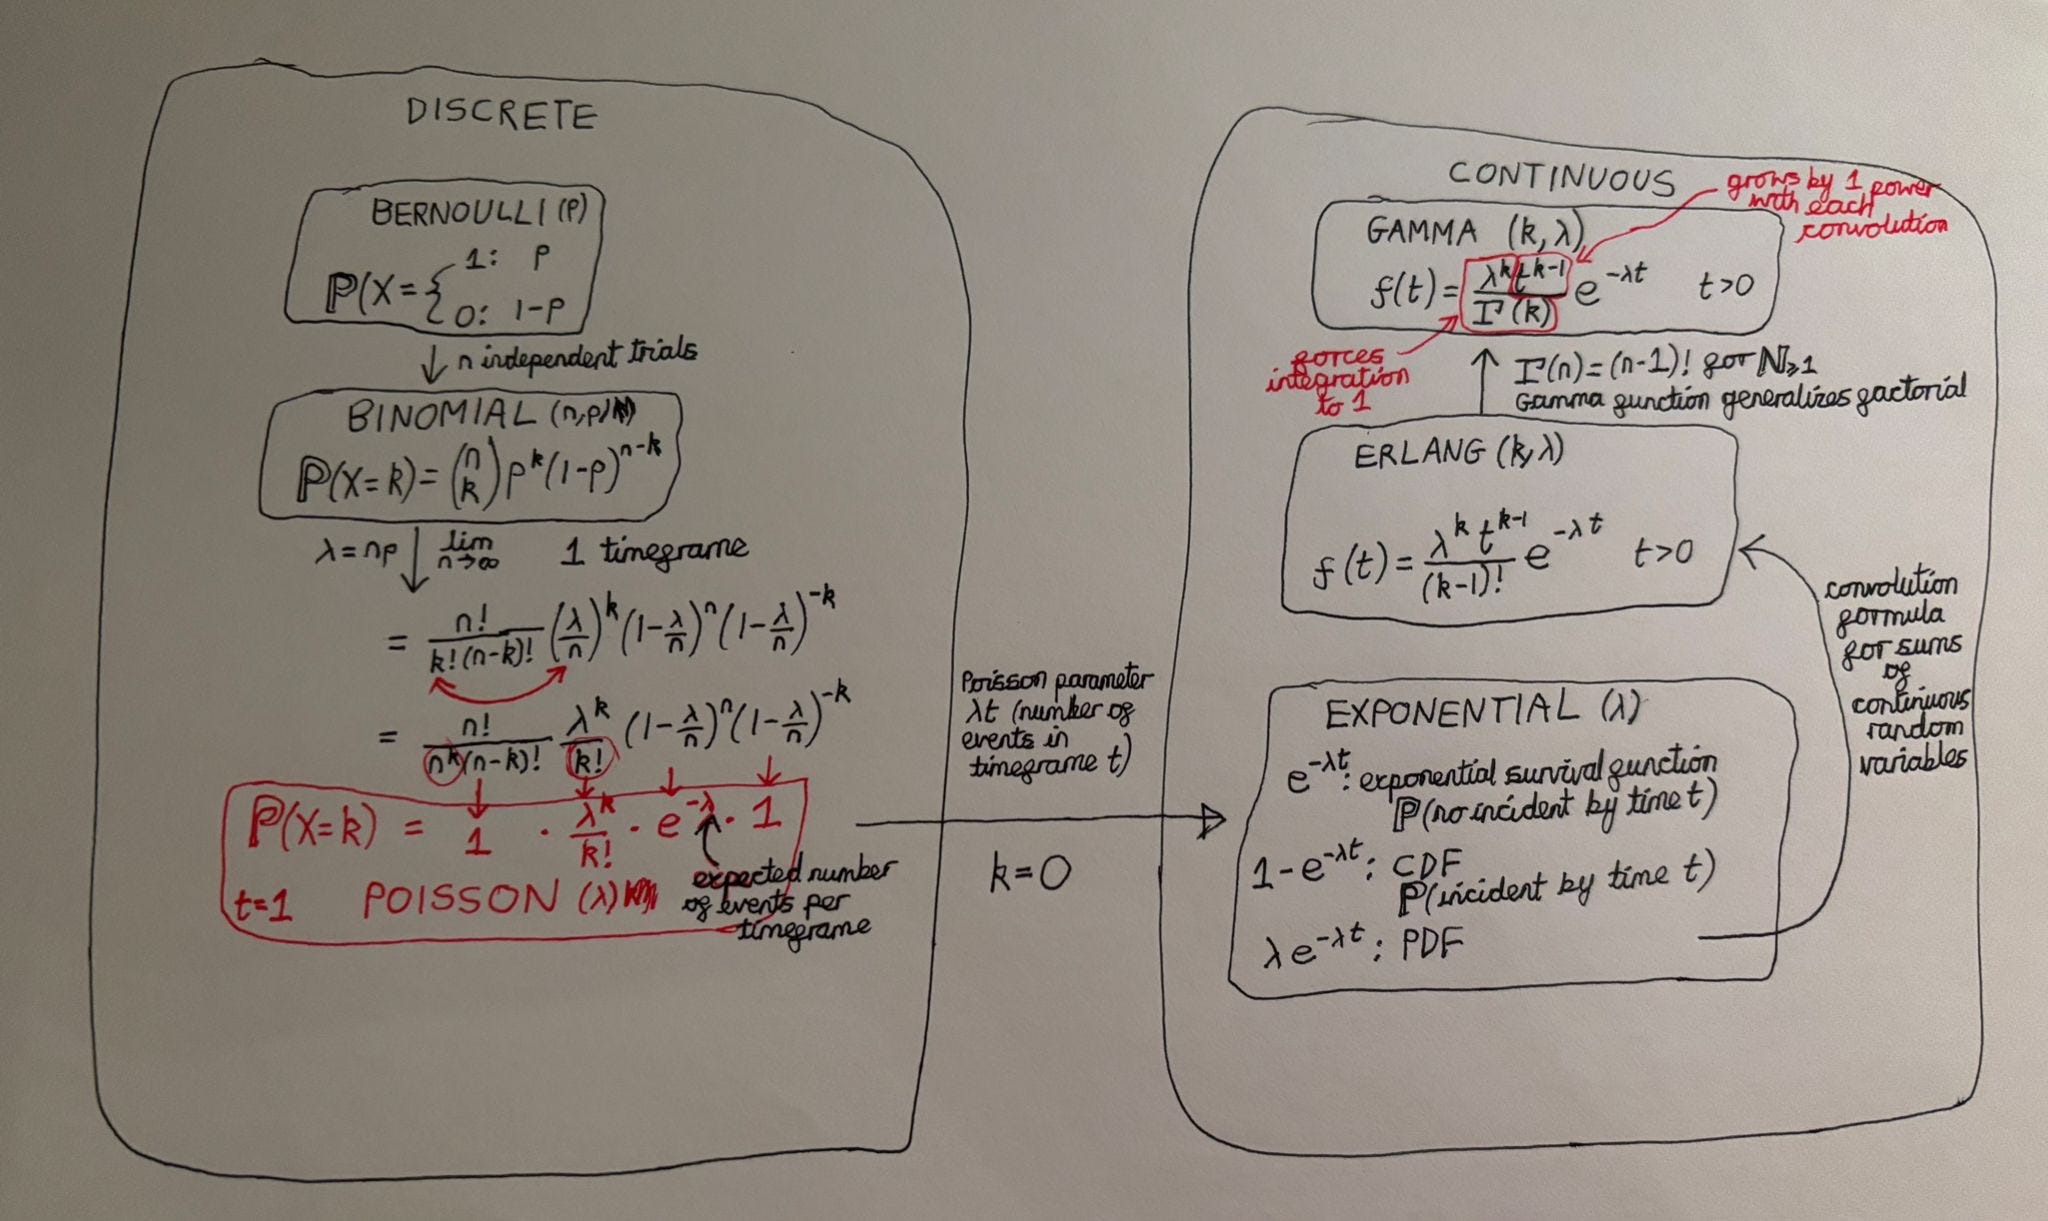 DISCRETE
BERNOULLI (p)
ℙ(X = { 1: p
0: 1-p
↓ n independent trials
BINOMIAL (n,p)
ℙ(X=k) = (n k) p^k (1-p)^{n-k}
λ=np ↓ lim n→∞ 1 timeframe
= n!/(k!(n-k)!) (λ/n)^k (1-λ/n)^n (1-λ/n)^{-k}
= n!/(n^k(n-k)!) λ^k/k! (1-λ/n)^n (1-λ/n)^{-k}
ℙ(X=k) = 1 · λ^k/k! · e^{-λ} · 1
t=1 POISSON (λ)
expected number
of events per
timeframe
Poisson parameter
λt (number of
events in
timeframe t)
k=0
CONTINUOUS
grows by 1 power
with each
convolution
GAMMA (k,λ)
f(t) = λ^k t^{k-1}/Γ(k) e^{-λt} t>0
forces
integration
to 1
↑ Γ(n)=(n-1)! for ℕ≥1
Gamma function generalizes factorial
ERLANG (k,λ)
f(t) = λ^k t^{k-1}/(k-1)! e^{-λt} t>0
convolution
formula
for sums
of
continuous
random
variables
EXPONENTIAL (λ)
e^{-λt}: exponential survival function
ℙ(no incident by time t)
1-e^{-λt}: CDF
ℙ(incident by time t)
λe^{-λt}: PDF